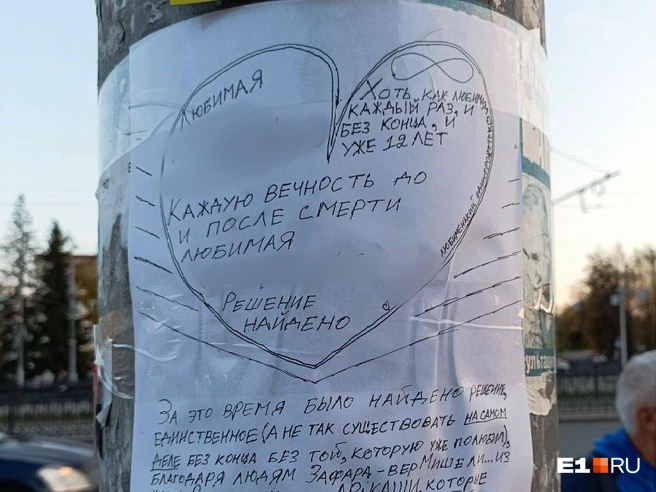 ЛЮБИМАЯ
ХОТЬ КАК ЛЮБИМ
КАЖДЫЙ РАЗ, И
БЕЗ КОНЦА, И
УЖЕ 12 ЛЕТ
КАЖДУЮ ВЕЧНОСТЬ ДО
И ПОСЛЕ СМЕРТИ
ЛЮБИМАЯ
РЕШЕНИЕ
НАЙДЕНО
ЗА ЭТО ВРЕМЯ БЫЛО НАЙДЕНО РЕШЕНИЕ,
ЕДИНСТВЕННОЕ (А НЕ ТАК СУЩЕСТВОВАТЬ НА САМОМ
ДЕЛЕ БЕЗ КОНЦА БЕЗ ТОЙ, КОТОРУЮ УЖЕ ПОЛЮБИЛ),
БЛАГОДАРЯ ЛЮДЯМ ЗАФАРА-ВЕРМИШЕЛИ... ИЗ
КАШИ, КОТОРЫЕ
E1 RU